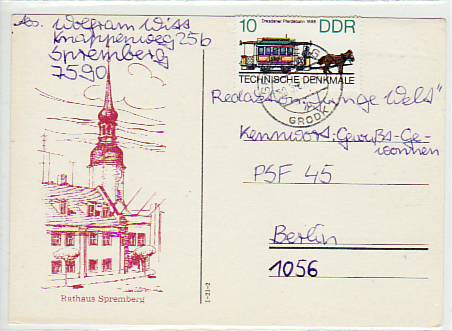 Abs. Wolfram Wiss
Knappenweg 25b
Spremberg
7590
Dresdener Pferdebahn 1886
10 DDR
TECHNISCHE DENKMALE
GRODK
Redaktion "Junge Welt"
Kennwort: Gewußt-Ge-
wonnen
PSF 45
Berlin
1056
Rathaus Spremberg
1-21-2